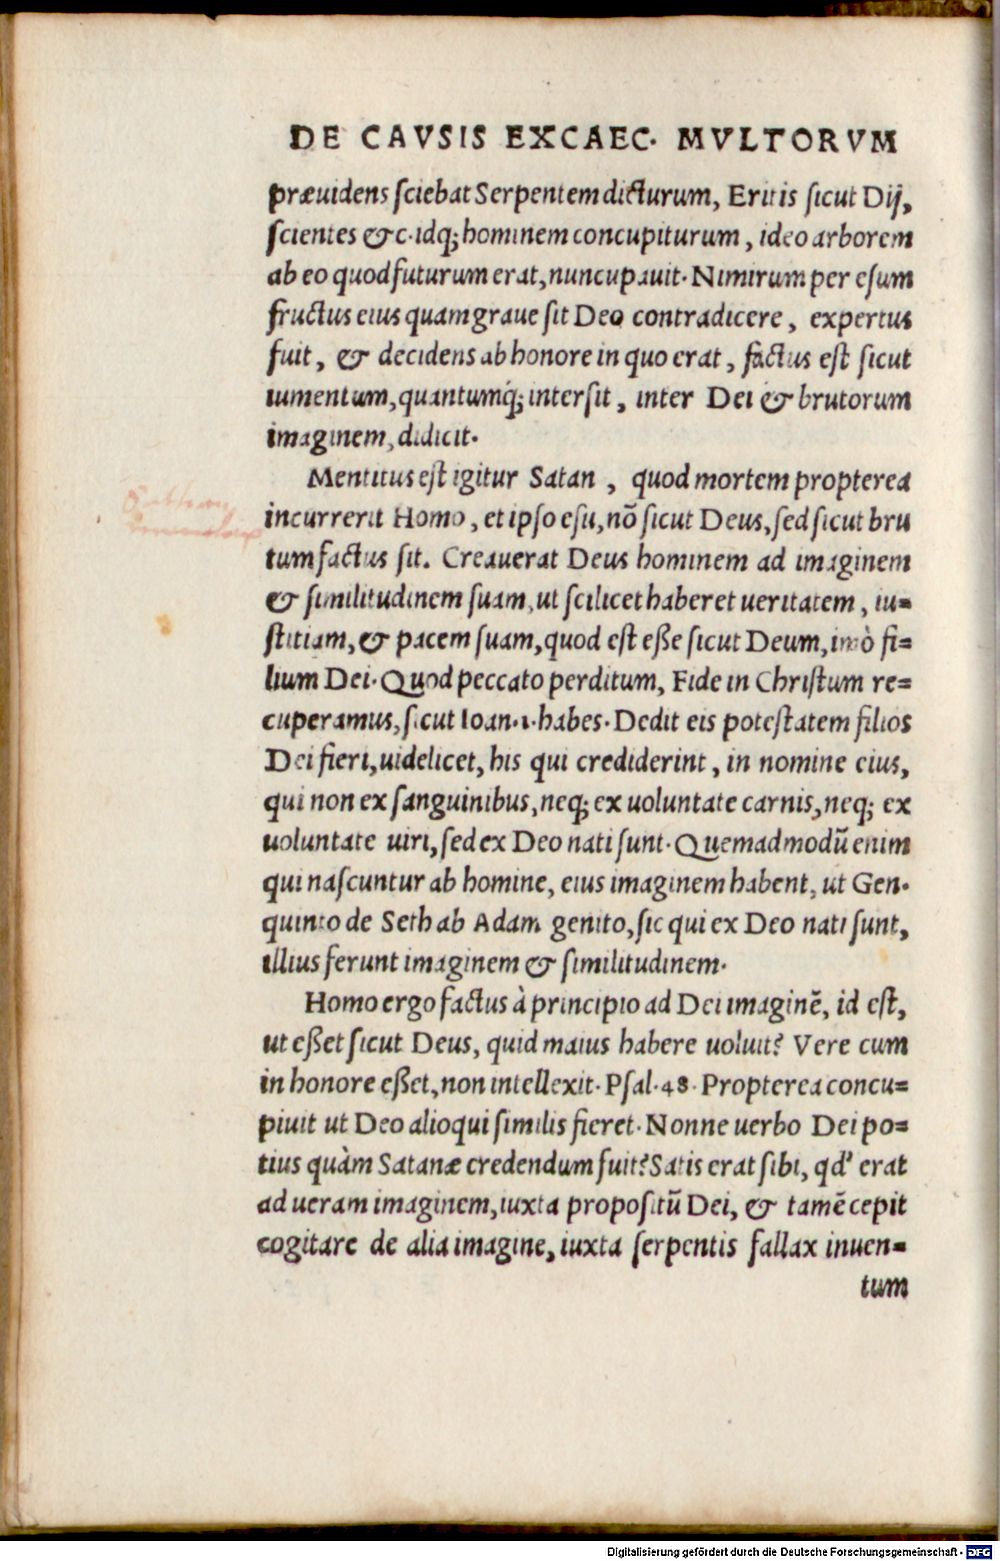 DE CAVSIS EXCAEC. MVLTORVM
præuidens sciebat Serpentem dicturum, Eritis sicut Dij,
scientes & c. idq; hominem concupiturum, ideo arborem
ab eo quod futurum erat, nuncupauit. Nimirum per esum
fructus eius quam graue sit Deo contradicere, expertus
fuit, & decidens ab honore in quo erat, factus est sicut
iumentum, quantumq́; intersit, inter Dei & brutorum
imaginem, didicit.
Mentitus est igitur Satan, quod mortem propterea
incurrerit Homo, et ipso esu, nõ sicut Deus, sed sicut bru
tum factus sit. Creauerat Deus hominem ad imaginem
& similitudinem suam, ut scilicet haberet ueritatem, iu=
stitiam, & pacem suam, quod est eße sicut Deum, imò fi=
lium Dei. Quod peccato perditum, Fide in Christum re=
cuperamus, sicut Ioan. 1. habes. Dedit eis potestatem filios
Dei fieri, uidelicet, his qui crediderint, in nomine eius,
qui non ex sanguinibus, neq; ex uoluntate carnis, neq; ex
uoluntate uiri, sed ex Deo nati sunt. Quemadmodũ enim
qui nascuntur ab homine, eius imaginem habent, ut Gen.
quinto de Seth ab Adam genito, sic qui ex Deo nati sunt,
illius ferunt imaginem & similitudinem.
Homo ergo factus à principio ad Dei imaginẽ, id est,
ut eßet sicut Deus, quid maius habere uoluit? Vere cum
in honore eßet, non intellexit. Psal. 48. Propterea concu=
piuit ut Deo alioqui similis fieret. Nonne uerbo Dei po=
tius quàm Satanæ credendum fuit? Satis erat sibi, qd' erat
ad ueram imaginem, iuxta propositũ Dei, & tamẽ cepit
cogitare de alia imagine, iuxta serpentis fallax inuen=
tum
Digitalisierung gefördert durch die Deutsche Forschungsgemeinschaft - DFG